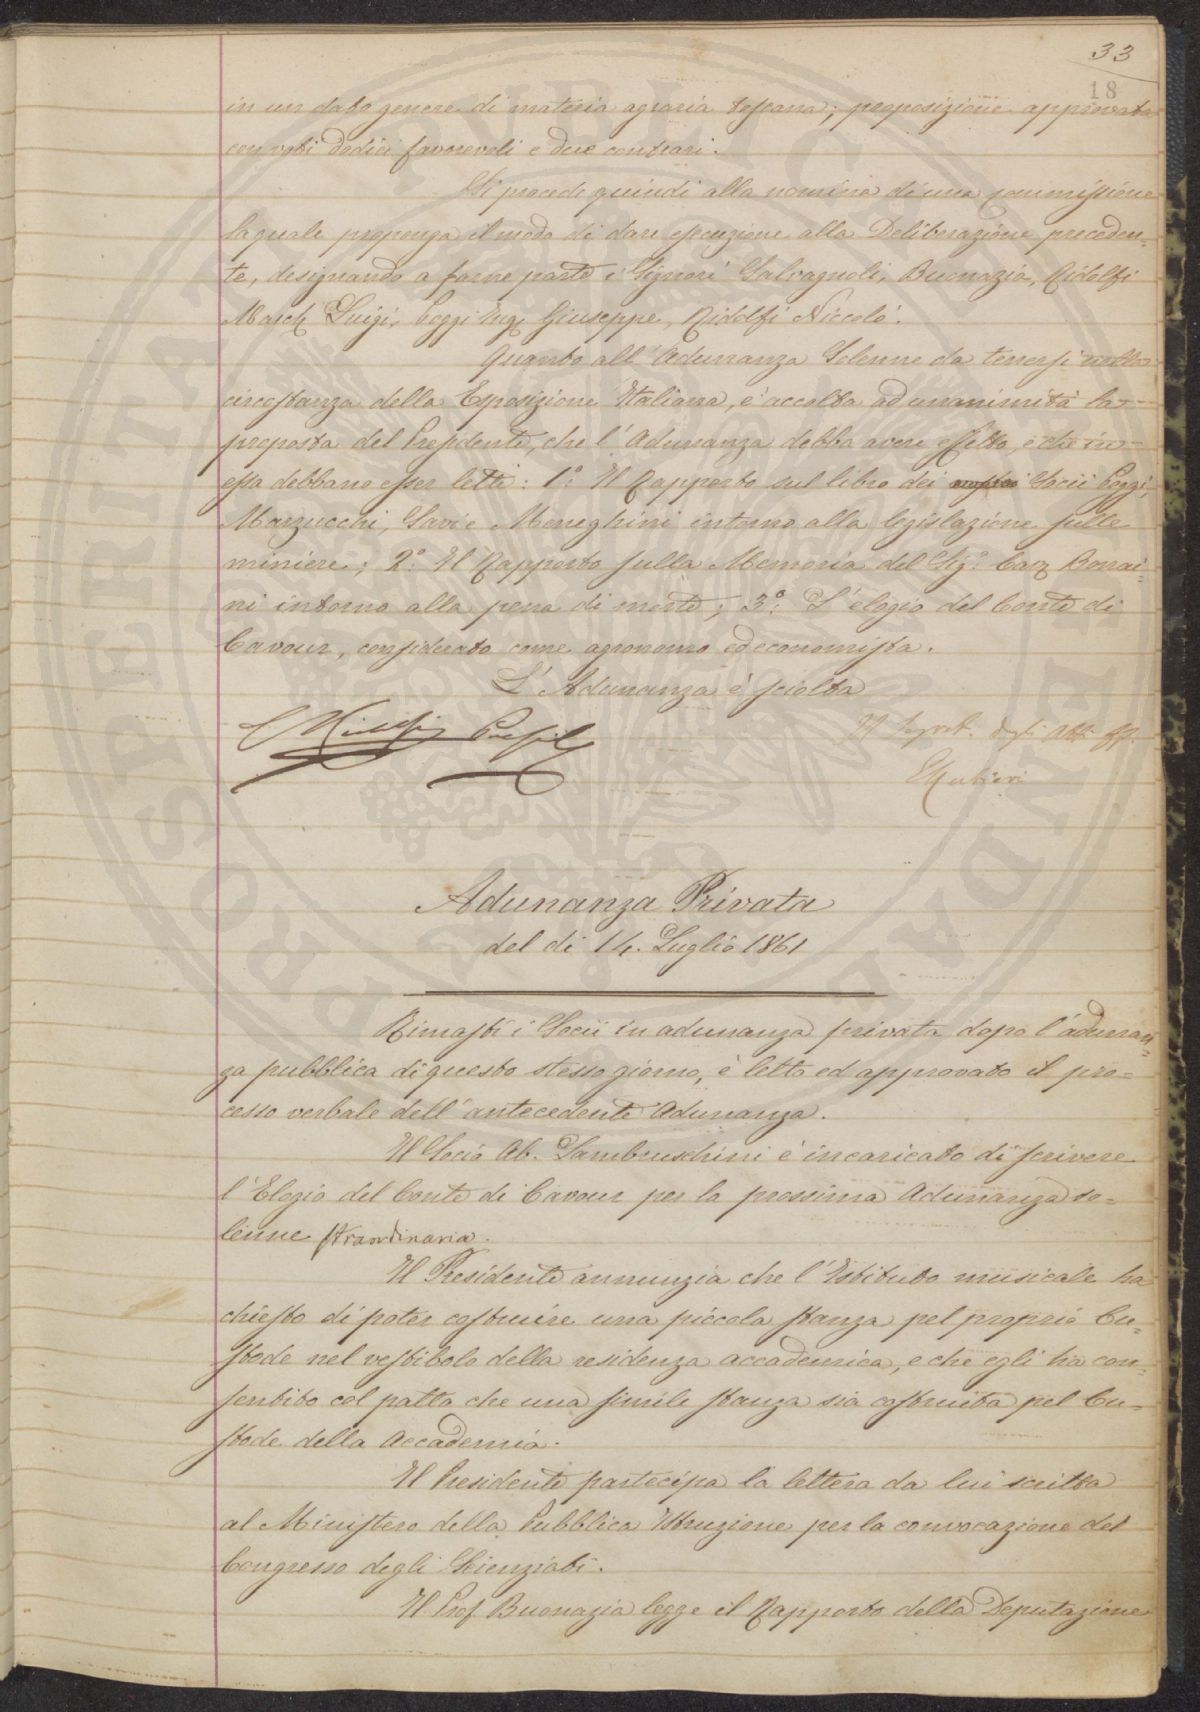 33
18
in un dato genere di materia agraria toscana; proposizione approvata
con voti dodici favorevoli e due contrari.
Si procede quindi alla nomina di una commissione
la quale proponga il modo di dare esecuzione alla Deliberazione preceden-
te, designando a farne parte i Signori Salvagnoli, Buonazia, Ridolfi
March. Luigi, Poggi Ing. Giuseppe, Ridolfi Niccolò.
Quanto all'Adunanza Solenne da tenersi nella
circostanza della Esposizione Italiana, è accolta ad unanimità la
proposta del Presidente, che l'Adunanza debba avere effetto, e che in
essa debbano esser letti: 1.° Il Rapporto sul libro dei Socii Poggi,
Marzucchi, Savi e Meneghini intorno alla legislazione sulle
miniere; 2.° Il Rapporto sulla Memoria del Sig.r Cav. Bonai-
ni intorno alla pena di morte; 3.° L'elogio del Conte di
Cavour, considerato come agronomo ed economista.
L'Adunanza è sciolta
C Ridolfi Presid.
Il Segret. degli Atti ff.
Rubieri
Adunanza Privata
del dì 14. Luglio 1861
Rimasti i Socii in adunanza privata dopo l'adunan-
za pubblica di questo stesso giorno, è letto ed approvato il pro-
cesso verbale dell'antecedente Adunanza.
Il Socio Ab. Lambruschini è incaricato di scrivere
l'Elogio del Conte di Cavour per la prossima Adunanza so-
lenne straordinaria.
Il Presidente annunzia che l'Istituto musicale ha
chiesto di poter costruire una piccola stanza pel proprio Cu-
stode nel vestibolo della residenza accademica, e che egli ha con-
sentito col patto che una simile stanza sia costruita pel Cu-
stode della Accademia.
Il Presidente partecipa la lettera da lui scritta
al Ministero della Pubblica Istruzione per la convocazione del
Congresso degli Scienziati.
Il Prof. Buonazia legge il Rapporto della Deputazione
PROSPERITATI PUBLICAE AUGENDAE